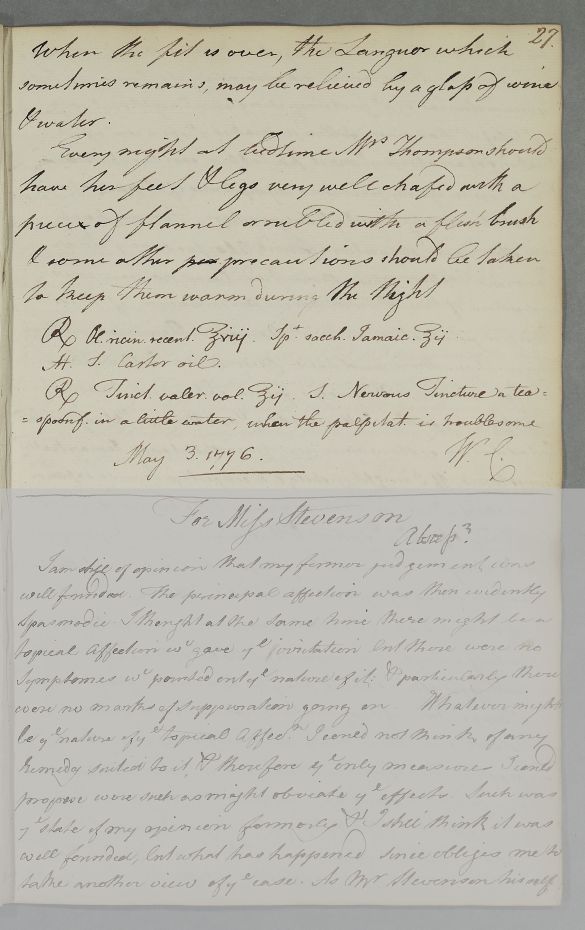 27.
When the fit is over, the Languor which
sometimes remains, may be relieved by a glass of wine
& water.
Every night at bedtime Mrs Thompson should
have her feet & legs very well chafed with a
piece of flannel or rubbed with a flesh brush
& some other precautions should be taken
to keep them warm during the Night
Rx Ol. ricin. recent. ʒiij. Spt. sacch. Jamaic. ʒij
S. Castor oil.
Rx Tinct. valer. vol. ʒij S. Nervous Tincture a tea=
=spoonf. in a little water, when the palpitat. is troublesome
May 3. 1776. W. C.
For Miss Stevenson
I am still of opinion that my former judgement was
well founded. The principal affection was then evidently
spasmodic. I thought at the same time there might be a
topical Affection wc gave ye irritation but there were no
Symptomes wc pointed out ye nature of it: & particularly there
were no marks of suppuration going on. Whatever might
be ye nature of ye topical Affecn. I coud not think of any
Remedy suited to it, & therefore ye only measures I coud
propose were such as might obviate ye effects. Such was
ye state of my opinion formerly & I still think it was
well founded, but what has happened since obliges me to
take another view of ye case. As Mr Stevenson himself